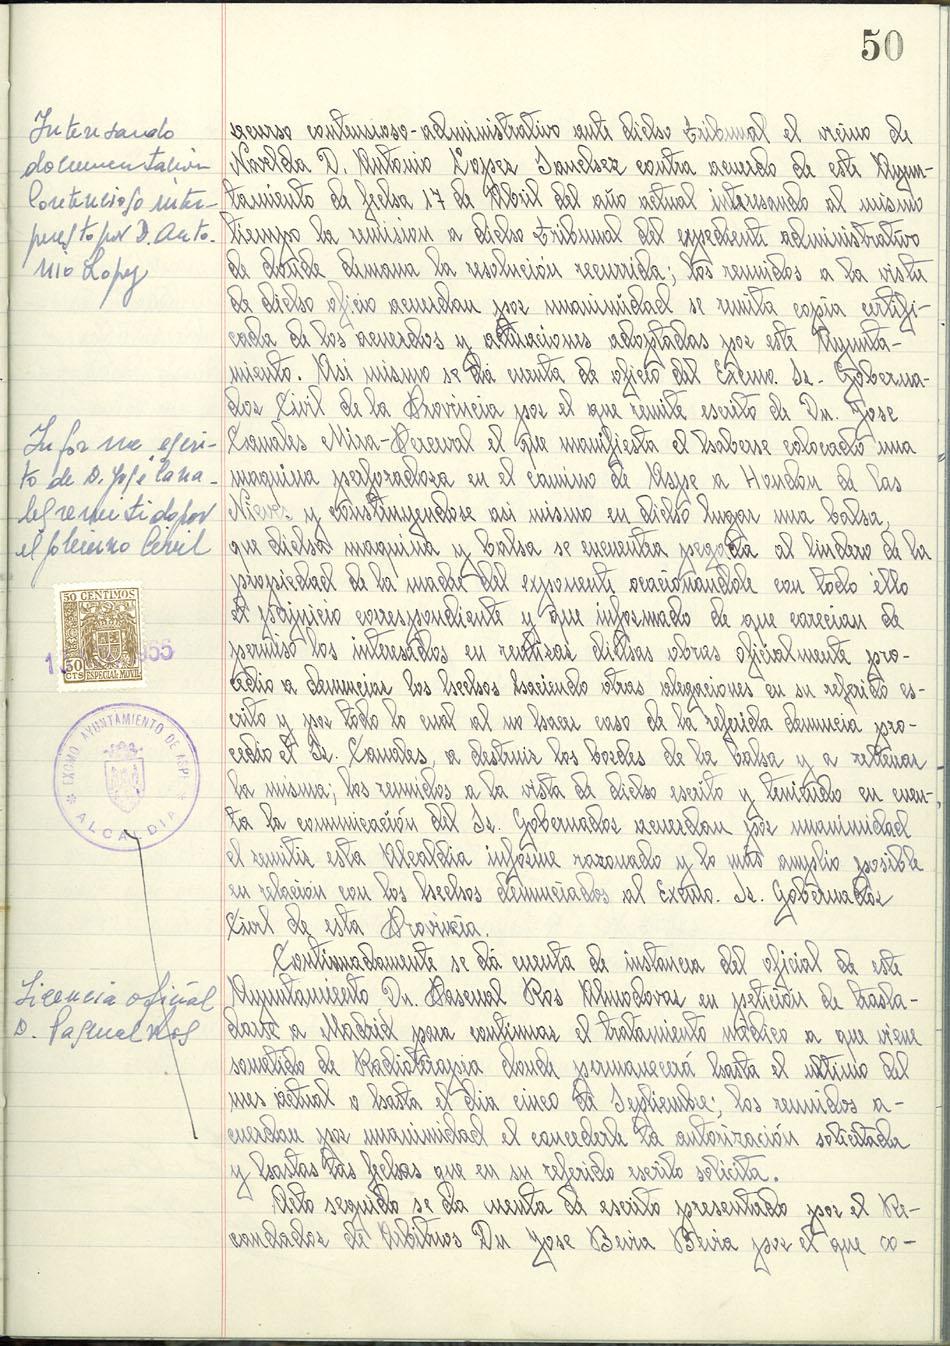 50
Interesando
documentación
Contencioso inter-
puesto por D. Anto-
nio Lopez
recurso contencioso-administrativo ante dicho tribunal el vecino de
Novelda D. Antonio Lopez Sanchez contra acuerdo de este Ayun-
tamiento de fecha 17 de Abril del año actual interesando al mismo
tiempo la remision a dicho tribunal del expediente administrativo
de donde demana la resolución recurrida; los reunidos a la vista
de dicho oficio acuerdan por unanimidad se remita copia certifi-
cada de los acuerdos y actuaciones adoptadas por este Ayunta-
miento. Asi mismo se dá cuenta de oficio del Excmo. Sr. Goberna-
dor Civil de la Provincia por el que remite escrito de Dn. Jose
Canales Mira-Perceval el que manifiesta el haberse colocado una
maquina perforadora en el camino de Aspe a Hondon de las
Nieves y construyendose asi mismo en dicho lugar una balsa,
que dicha maquina y balsa se encuentra pegada al lindero de la
propiedad de la madre del exponente ocacionandole con todo ello
el perjuicio correspondiente y que informado de que carecian de
permiso los interesados en realizar dichas obras oficialmente pro-
cedio a denunciar los hechos haciendo otras alegaciones en su referido es-
crito y por todo lo cual al no hacer caso de la referida denuncia pro-
cedio el Sr. Canales, a destruir los bordes de la balsa y a rellenar
la misma; los reunidos a la vista de dicho escrito y teniendo en cuen-
ta la comunicación del Sr. Gobernador acuerdan por unanimidad
el remitir esta Alcaldia informe razonado y lo más amplio posible
en relación con los hechos denunciados al Excmo. Sr. Gobernador
Civil de esta Provincia.
Informe escri-
to de D. José Cana-
les remitido por
el Gobierno Civil
50 CENTIMOS
50 CTS
ESPECIAL MOVIL
EXCMO AYUNTAMIENTO DE ASPE
ALCALDIA
Licencia oficial
D. Pascual Ros
Continuadamente se dá cuenta de instancia del oficial de este
Ayuntamiento Dn. Pascual Ros Almodovar en petición de trasla-
darse a Madrid para continuar el tratamiento médico a que viene
sometido de Radioterapia donde permanecerá hasta el ultimo del
mes actual o hasta el dia cinco de Septiembre; los reunidos a-
cuerdan por unanimidad el concederle la autorización solicitada
y hastas las fechas que en su referido escrito solicita.
Acto seguido se da cuenta de escrito presentado por el Re-
caudador de Arbitrios Dn Jose Beviá Beviá por el que co-